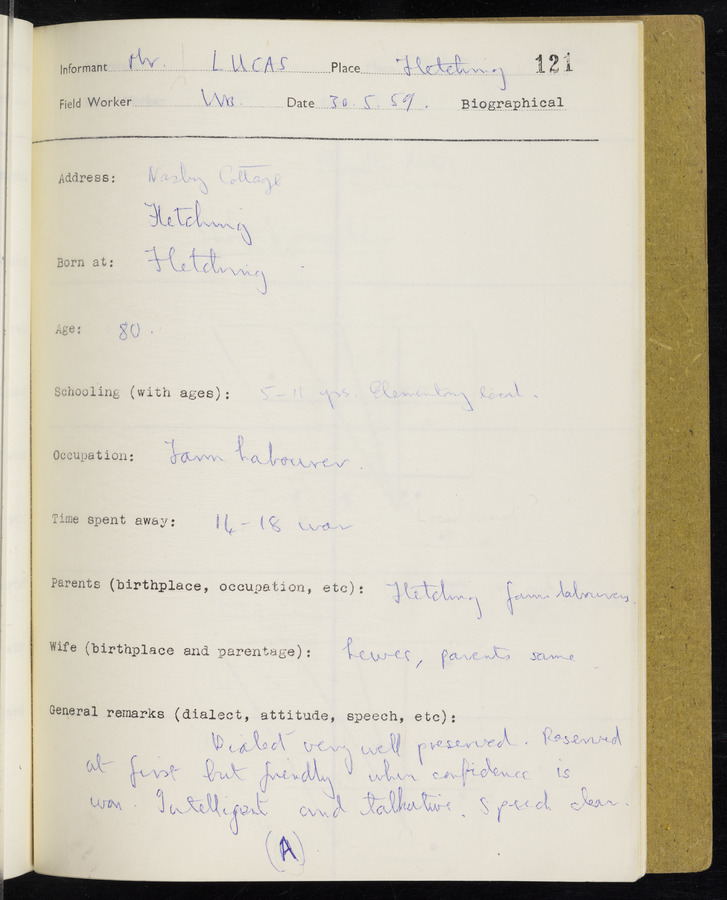 Informant Mr. LUCAS Place Fletching 121
Field Worker Date 30. 5. 59. Biographical
Address: Cottage
Fletching
Born at: Fletching
Age: 80.
Schooling (with ages): 5-11 yrs. Elementary local.
Occupation: Farm Labourer.
Time spent away: 14-18 war
Parents (birthplace, occupation, etc): Fletching farm labourers.
Wife (birthplace and parentage): Lewes, parents same
General remarks (dialect, attitude, speech, etc):
Dialect very well preserved. Reserved
at first but friendly when confidence is
won. Intelligent and talkative. Speech clear.
(A)